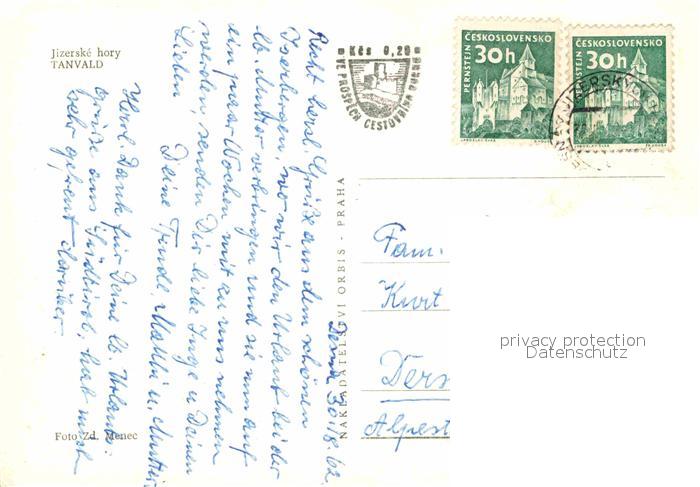 Jizerské hory
TANVALD
Kčs 0,20
VE PROSPĚCH CESTOVNÍHO RUCHU
ČESKOSLOVENSKO
30h
PERNŠTEJN
JAROSLAV ŠVÁB
ČESKOSLOVENSKO
30h
PERNŠTEJN
JAROSLAV ŠVÁB
30./8. 62.
Recht herzl. Grüße aus dem schönen
Isergebirge, wo wir den Urlaub bei der
lb. Mutter verbringen und sie nun auf
ein paar Wochen mit zu uns nehmen
werden, senden Dir liebe Inge u. Deinen
Lieben
Deine Trudl, u. Mutter
Herzl. Dank für Deine lb. Urlaubs-
grüße aus Südtirol, hab mich
sehr gefreut darüber.
Foto Zd. Menec
NAKLADATELSTVÍ ORBIS - PRAHA
Fam.
Kurt
Ders
Alpest
privacy protection
Datenschutz